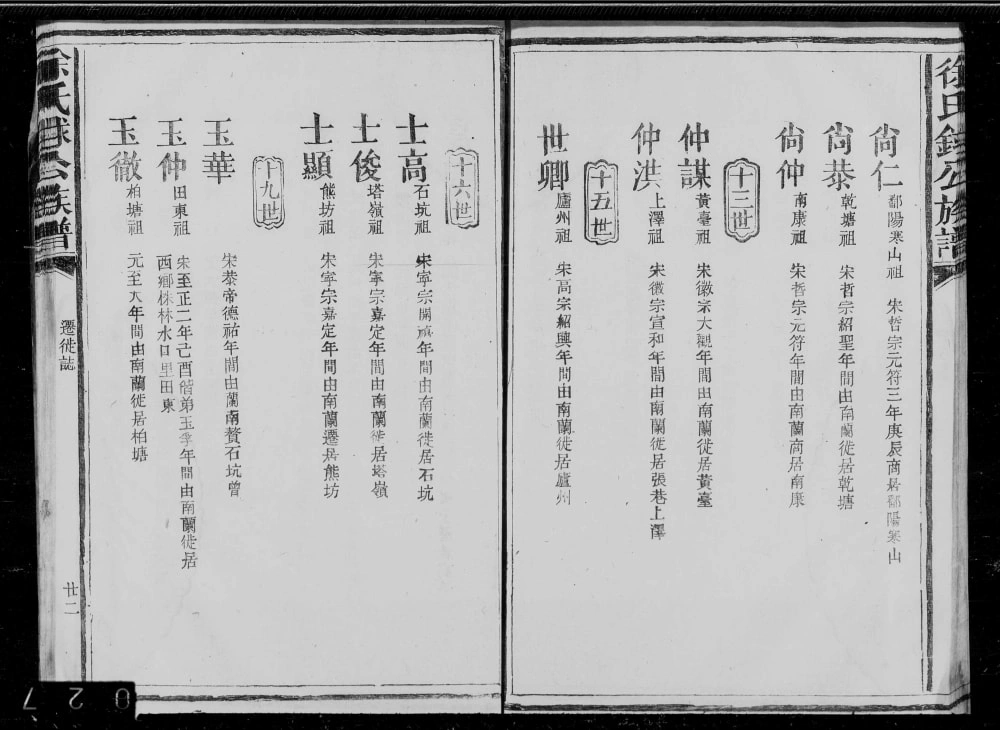 尙仁 鄱陽寒山祖 宋哲宗元符三年庚辰商居鄱陽寒山
尙恭 乾塘祖 宋哲宗紹聖年間由南蘭徙居乾塘
尙仲 南康祖 宋哲宗元符年間由南蘭商居南康
十三世
仲謀 黃臺祖 宋徽宗大觀年間由南蘭徙居黃臺
仲洪 上澤祖 宋徽宗宣和年間由南蘭徙居張巷上澤
十五世
世卿 廬州祖 宋高宗紹興年間由南蘭徙居廬州
十六世
士高 石坑祖 宋寧宗開禧年間由南蘭徙居石坑
士俊 塔嶺祖 宋寧宗嘉定年間由南蘭徙居塔嶺
士顯 熊坊祖 宋寧宗嘉定年間由南蘭遷居熊坊
十九世
玉華 宋恭帝德祐年間由蘭南贅石坑曾
玉仲 田東祖 宋至正二年己酉偕弟玉季年間由南蘭徙居
西鄉株林水口里田東
玉徹 柏塘祖 元至大年間由南蘭徙居柏塘
徐氏 公族譜
遷徙誌
廿二
徐氏 公族譜
027